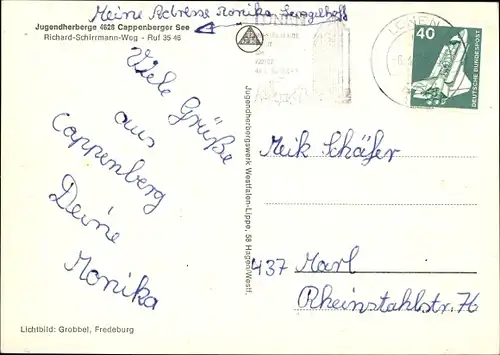 Meine Adresse Monika
Jugendherberge 4628 Cappenberger See
Richard-Schirrmann-Weg - Ruf 35 46
Viele Grüße
aus
Cappenberg
Deine
Monika
Lichtbild: Grobbel, Fredeburg
Jugendherbergswerk Westfalen-Lippe, 58 Hagen/Westf.
LÜNEN
40
DEUTSCHE BUNDESPOST
Meik Schäfer
437 Marl
Rheinstahlstr. 76